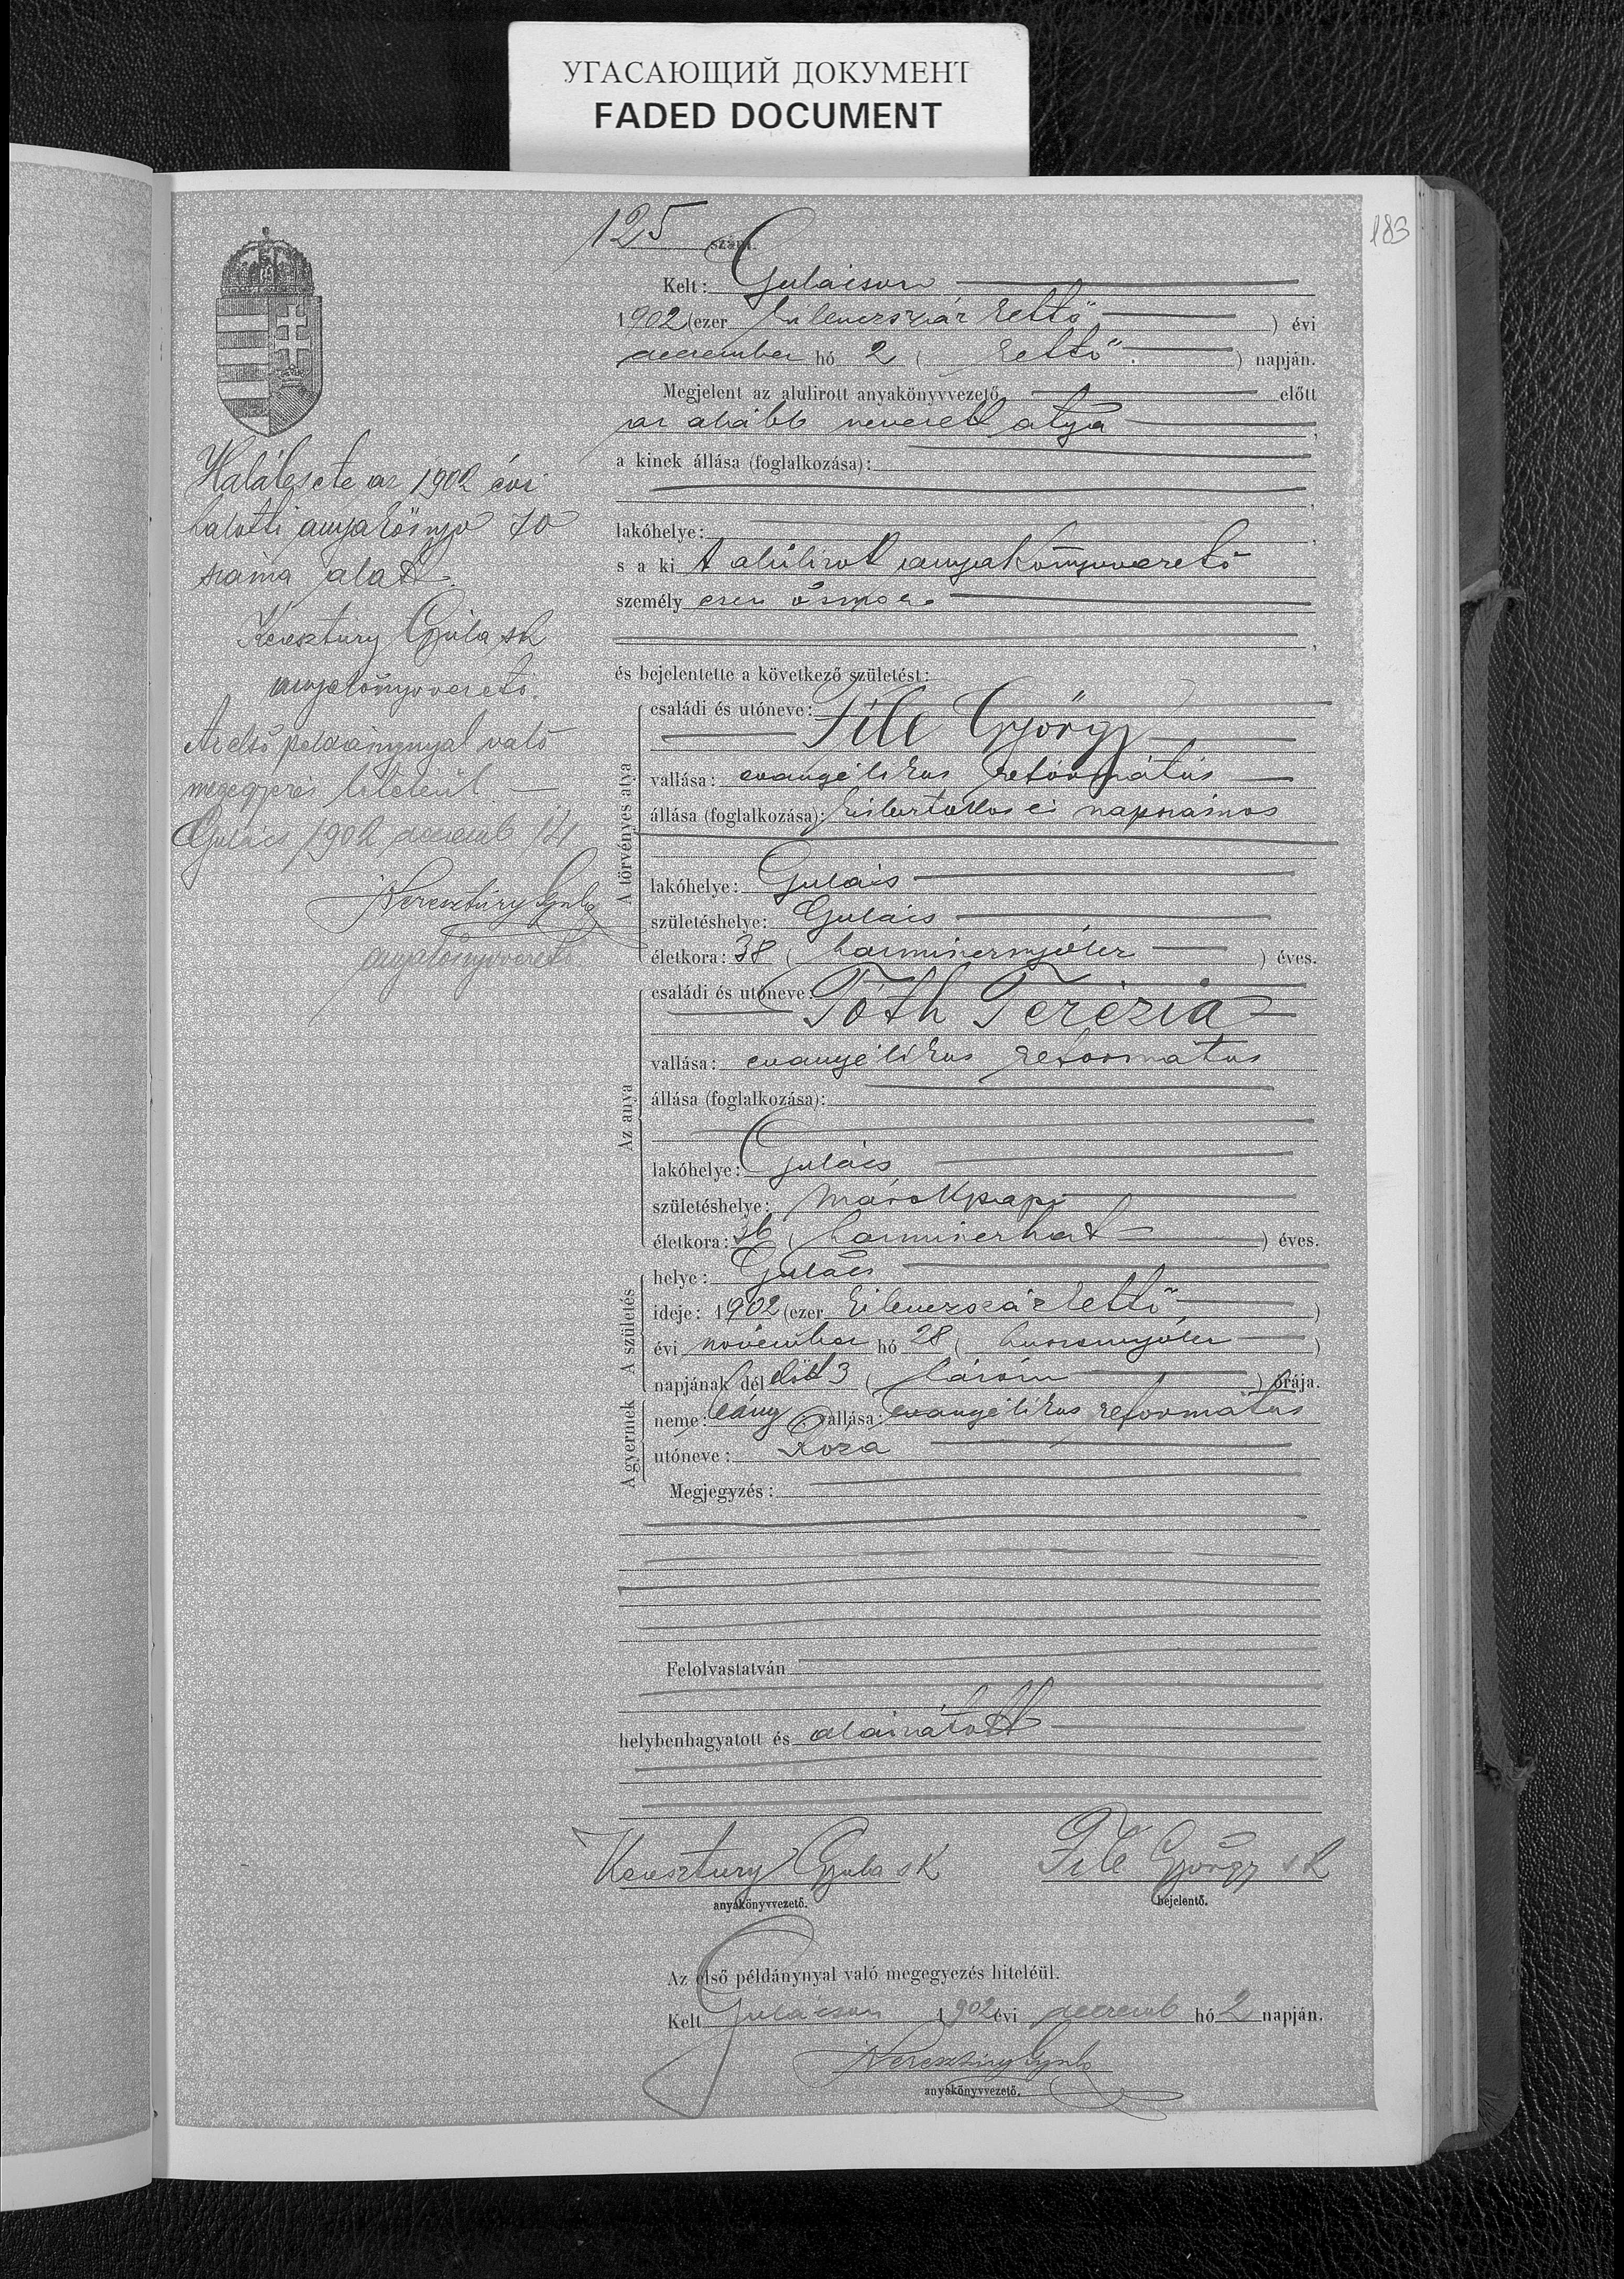 УГАСАЮЩИЙ ДОКУМЕНТ
FADED DOCUMENT
183
125 szám.
Kelt: Gulácson
1902 (ezer kilenczszáz kettő) évi
deczember hó 2 (kettő) napján.
Megjelent az alulirott anyakönyvvezető előtt
az alább nevezett atya,
a kinek állása (foglalkozása):
lakóhelye:
s a ki t alúlirott anyakönyvvezető
személyesen ösmer
és bejelentette a következő születést:
A törvényes atya
családi és utóneve:
File György
vallása: evangélikus református
állása (foglalkozása): kisbirtokos és napszámos
lakóhelye: Gulács
születéshelye: Gulács
életkora: 38 (harmincznyolcz) éves.
Az anya
családi és utóneve:
Tóth Terézia
vallása: evangélikus református
állása (foglalkozása):
lakóhelye: Gulács
születéshelye: Márokpapi
életkora: 36 (harminczhat) éves.
A születés
helye: Gulács
ideje: 1902 (ezer kilenczszáz kettő)
évi november hó 28 (huszonnyolcz)
napjának dél előtt 3 (három) órája.
A gyermek
neme: leány vallása: evangélikus református
utóneve: Roza
Megjegyzés:
Felolvastatván
helybenhagyatott és aláiratott
Keresztúry Gyula sk
anyakönyvvezető.
File György sk
bejelentő.
Az első példánynyal való megegyezés hiteléül.
Kelt Gulácson 1902 évi deczemb hó 2 napján.
Keresztúry Gyula
anyakönyvvezető.
Halálesete az 1902 évi
halotti anyakönyv 70
száma alatt.
Keresztúry Gyula sk
anyakönyvvezető.
Az első példánynyal való
megegyezés hiteléül.
Gulács 1902 deczemb
Keresztúry Gyula
anyakönyvvezető.